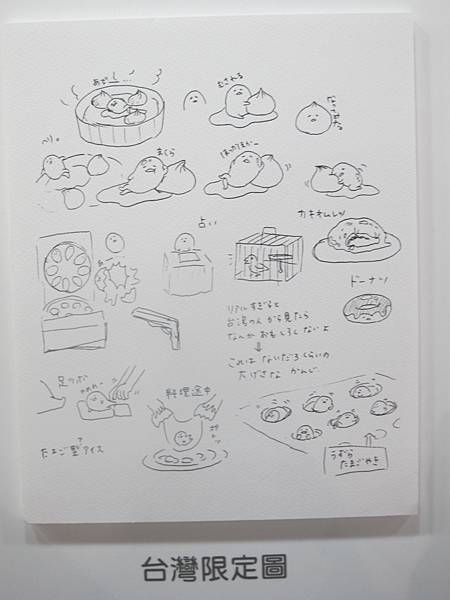 あぢー…
むされる
まくら
占い
カキオムレツ
ドーナツ
リアルすぎると
台湾の人から見たら
なんかおもしろくないよ
↓
これはないだろくらいの
大げさなかんじ
足ツボ
料理途中
たまご型アイス
うずら
たまごやき
台灣限定圖